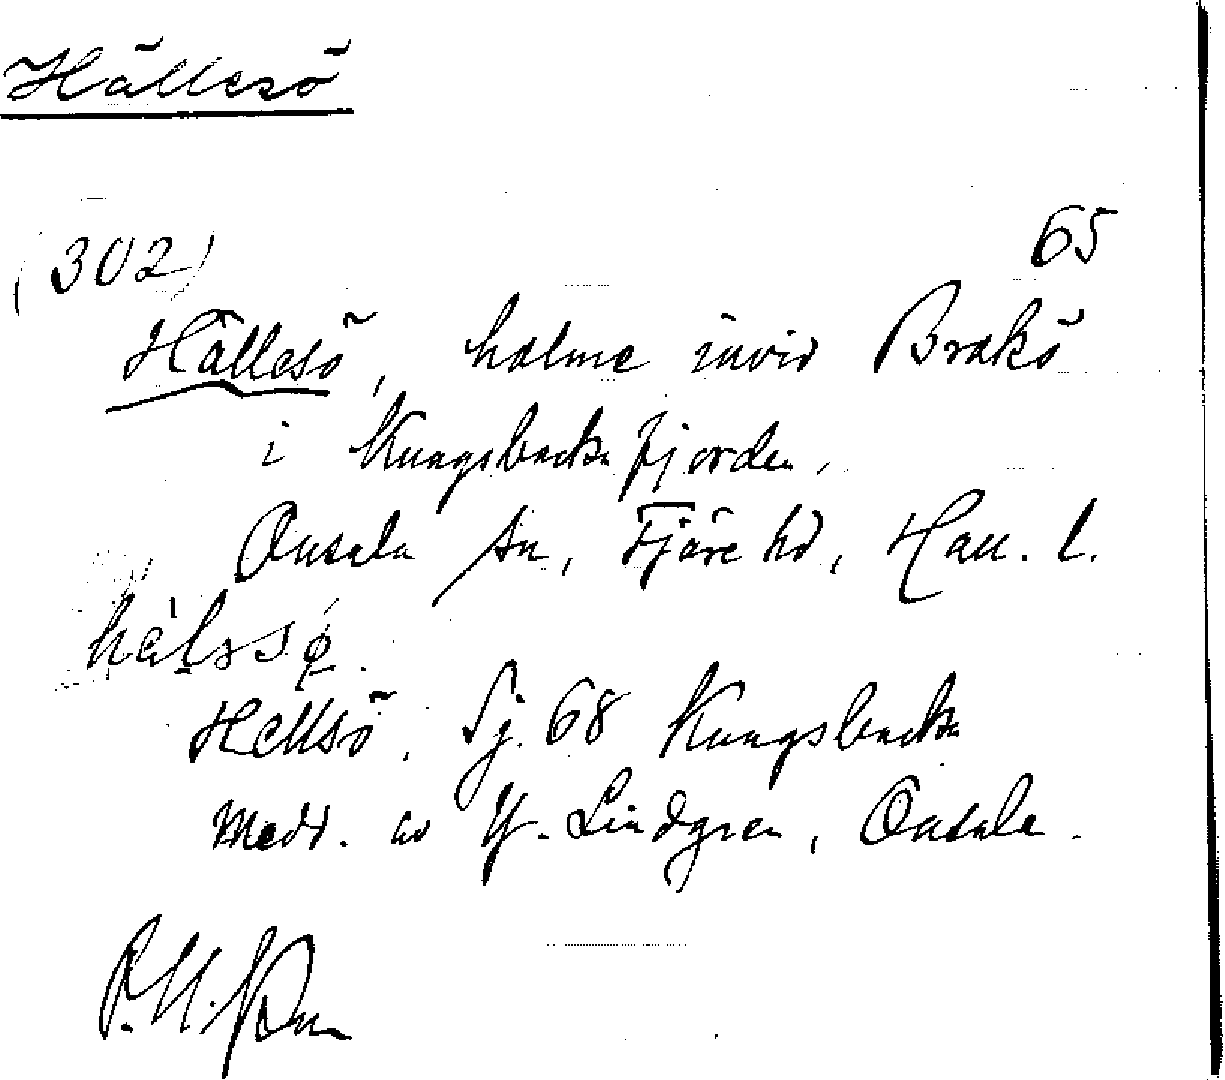 Hällesö
(302) 65
Hällesö, holme invid Brakö
i Kungsbackafjorden.
Onsala sn, Fjäre hd, Hall. l.
Hellsö. Sj. 68 Kungsbacka
Medd. av Hj. Lindgren, Onsala.